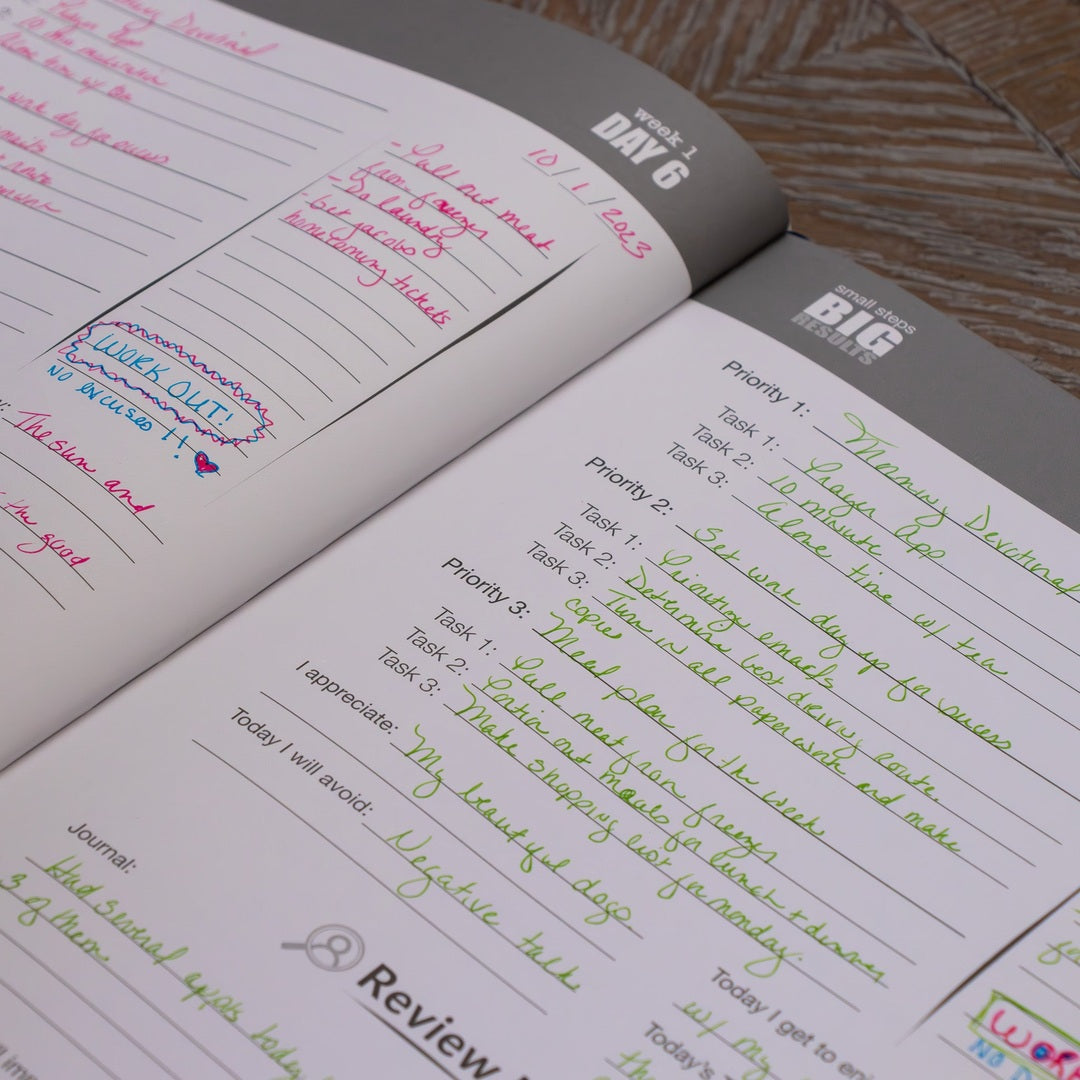 Devotional
Prayer App
10 min meditation
Alone time w/
work day for success
week 1
DAY 6
10/1/2023
- Pull out meat
from freezer
- Do laundry
- Get jacobs
homecoming tickets
WORK OUT!
NO excuses!!
The sun and
the good
small steps
BIG
RESULTS
Priority 1: Morning Devotional
Task 1: Prayer App
Task 2: 10 minute
Task 3: Alone time w/ tea
Priority 2: Set work day up for success
Task 1: Prioritize emails
Task 2: Determine best driving route.
Task 3: Turn in all paperwork and make
copies
Priority 3: Meal plan for the week
Task 1: Pull meat from freezer
Task 2: Portion out meals for lunch + dinner
Task 3: Make shopping list for monday.
I appreciate: My beautiful dogs.
Today I will avoid: Negative talk
Journal:
Had several appts today
3 of them.
Review
Today I get to enj
w/ my
Today's
the
WORK
NO